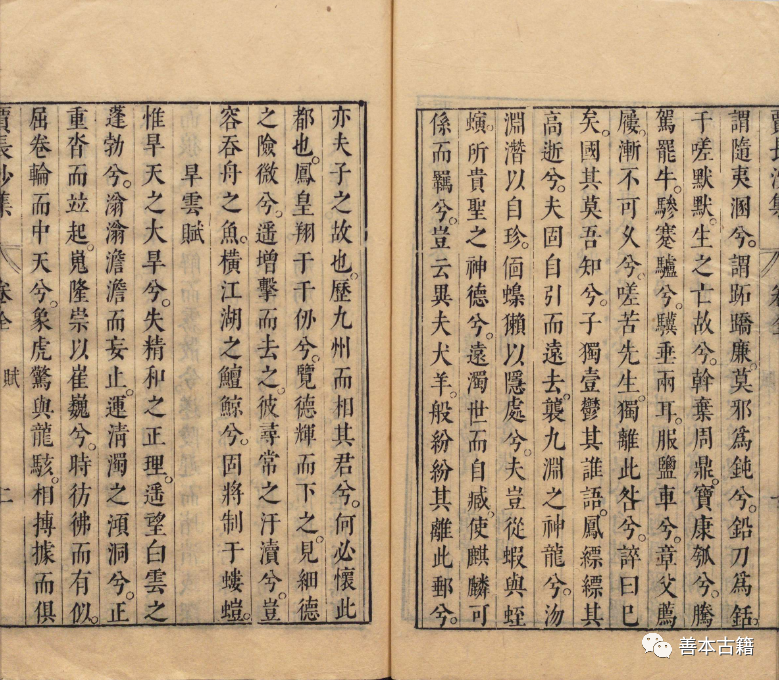 謂隨夷溷兮。謂跖蹻廉。莫邪爲鈍兮。鉛刀爲銛。
于嗟默默。生之亡故兮。斡棄周鼎。寶康瓠兮。騰
駕罷牛。驂蹇驢兮。驥垂兩耳。服鹽車兮。章父薦
屨。漸不可久兮。嗟苦先生。獨離此咎兮。誶曰巳
矣。國其莫吾知兮。子獨壹鬱其誰語。鳳縹縹其
高逝兮。夫固自引而遠去。襲九淵之神龍兮。沕
淵潛以自珍。偭蟂獺以隱處兮。夫豈從蝦與蛭
螾。所貴聖之神德兮。遠濁世而自臧。使麒麟可
係而羈兮。豈云異夫犬羊。般紛紛其離此郵兮。
亦夫子之故也。歷九州而相其君兮。何必懷此
都也。鳳皇翔于千仞兮。覽德輝而下之。見細德
之險微兮。遥增擊而去之。彼尋常之汙瀆兮。豈
容吞舟之魚。橫江湖之鱣鯨兮。固將制于螻螘。
旱雲賦
惟旱天之大旱兮。失精和之正理。遥望白雲之
蓬勃兮。滃滃澹澹而妄止。運清濁之澒洞兮。正
重沓而竝起。嵬隆崇以崔巍兮。時彷彿而有似。
屈卷輪而中天兮。象虎驚與龍駭。相搏據而俱
賈長沙集 卷全 賦 二
善本古籍